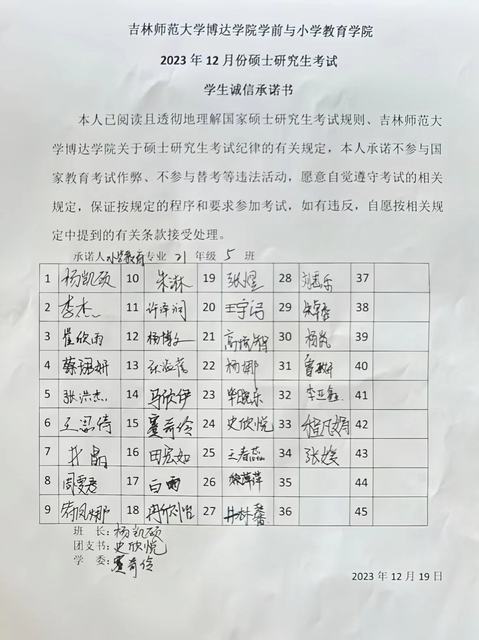 吉林师范大学博达学院学前与小学教育学院
2023 年 12 月份硕士研究生考试
学生诚信承诺书
本人已阅读且透彻地理解国家硕士研究生考试规则、吉林师范大
学博达学院关于硕士研究生考试纪律的有关规定，本人承诺不参与国
家教育考试作弊、不参与替考等违法活动，愿意自觉遵守考试的相关
规定，保证按规定的程序和要求参加考试，如有违反，自愿按相关规
定中提到的有关条款接受处理。
承诺人小学教育专业 21 年级 5 班
1 杨凯硕 10 朱淋 19 张煜 28 37
2 李杰 11 20 29 38
3 崔欣雨 12 杨博文 21 30 杨岚 39
4 13 22 杨娜 31 40
5 张洪杰 14 马欣伊 23 32 李亚鑫 41
6 王思倩 15 24 史欣悦 33 42
7 井晶 16 田宏如 25 王春蕊 34 43
8 17 白雪 26 35 44
9 18 冉欣怡 27 井树馨 36 45
班 长：杨凯硕
团支书：史欣悦
学 委：
2023 年 12 月 19 日